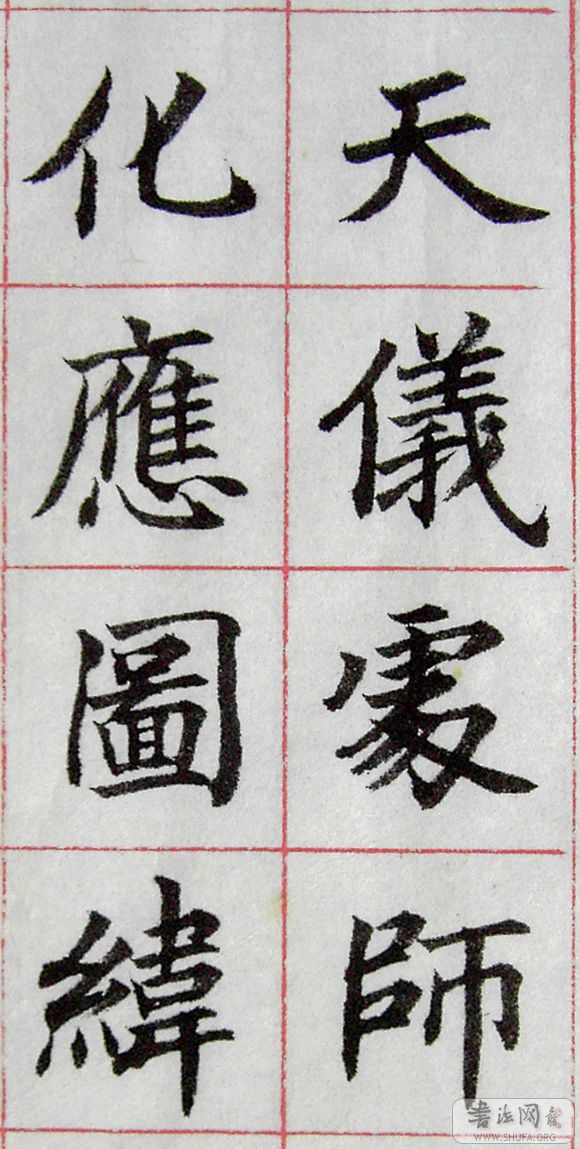 天儀師
化應圖緯
书法网
WWW.SHUFA.ORG